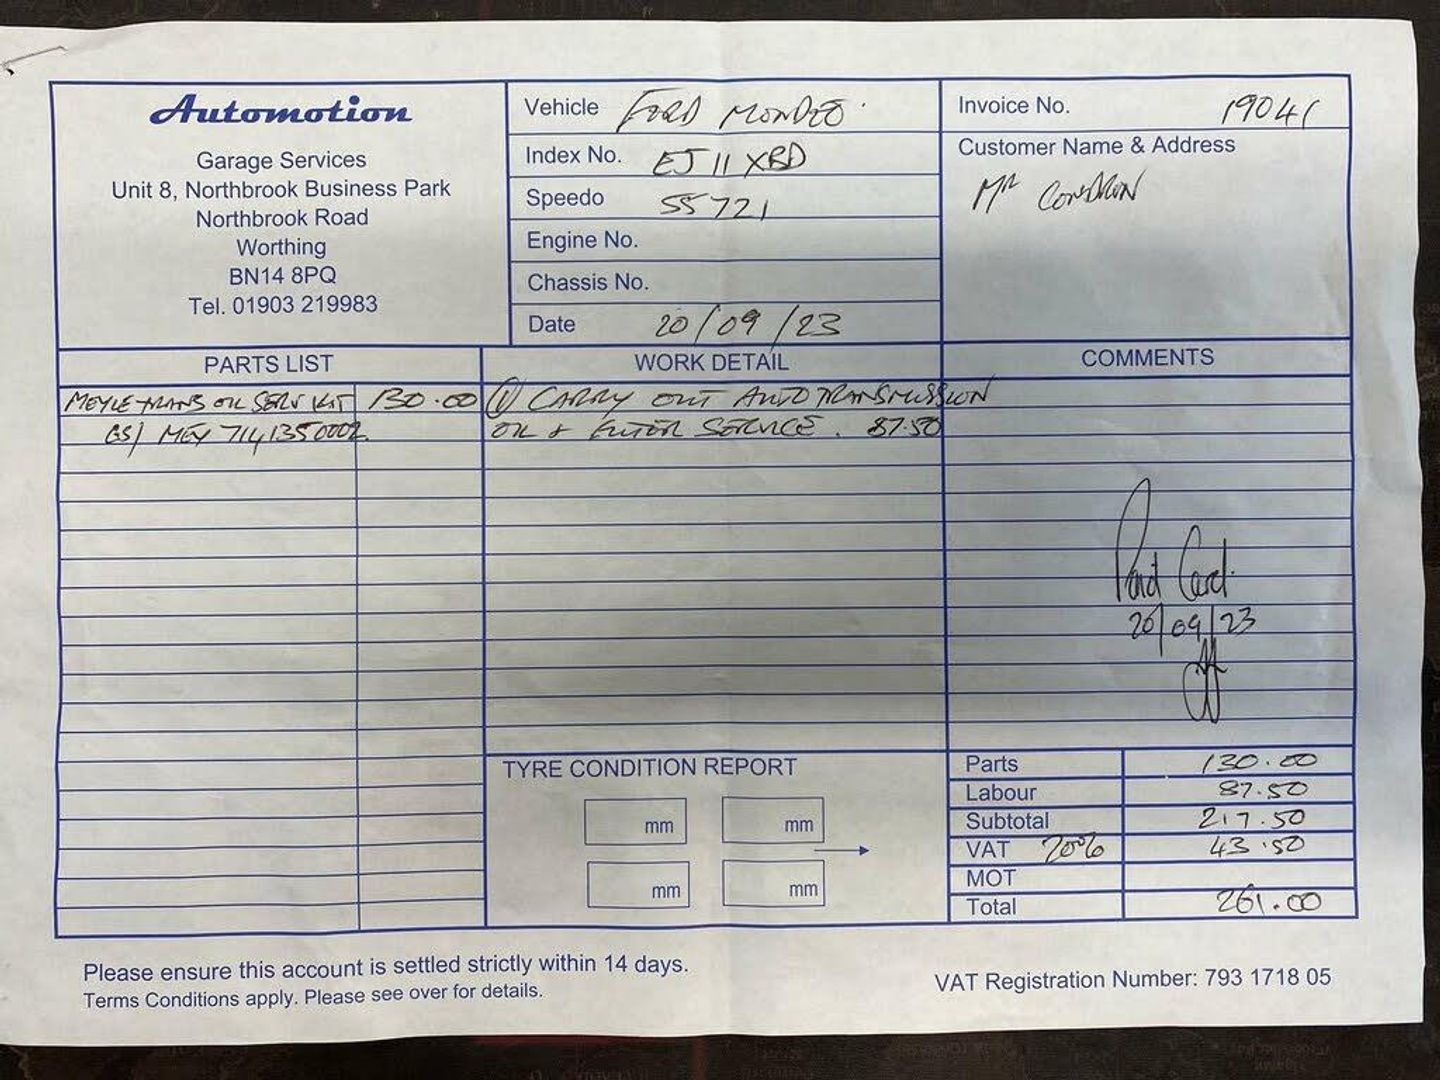 Automotion
Garage Services
Unit 8, Northbrook Business Park
Northbrook Road
Worthing
BN14 8PQ
Tel. 01903 219983
Vehicle FORD MONDEO
Index No. EJ11 XBD
Speedo 55721
Engine No.
Chassis No.
Date 20/09/23
Invoice No. 19041
Customer Name & Address
MR CONDRON
PARTS LIST
MEYLE TRANS OIL SERV KIT 130.00
GS/ MEY 7141350002
WORK DETAIL
① CARRY OUT AUTO TRANSMISSION
OIL & FILTER SERVICE. 87.50
COMMENTS
Paid Card.
20/09/23
TYRE CONDITION REPORT
mm mm
mm mm
Parts 130.00
Labour 87.50
Subtotal 217.50
VAT 20% 43.50
MOT
Total 261.00
Please ensure this account is settled strictly within 14 days.
Terms Conditions apply. Please see over for details.
VAT Registration Number: 793 1718 05